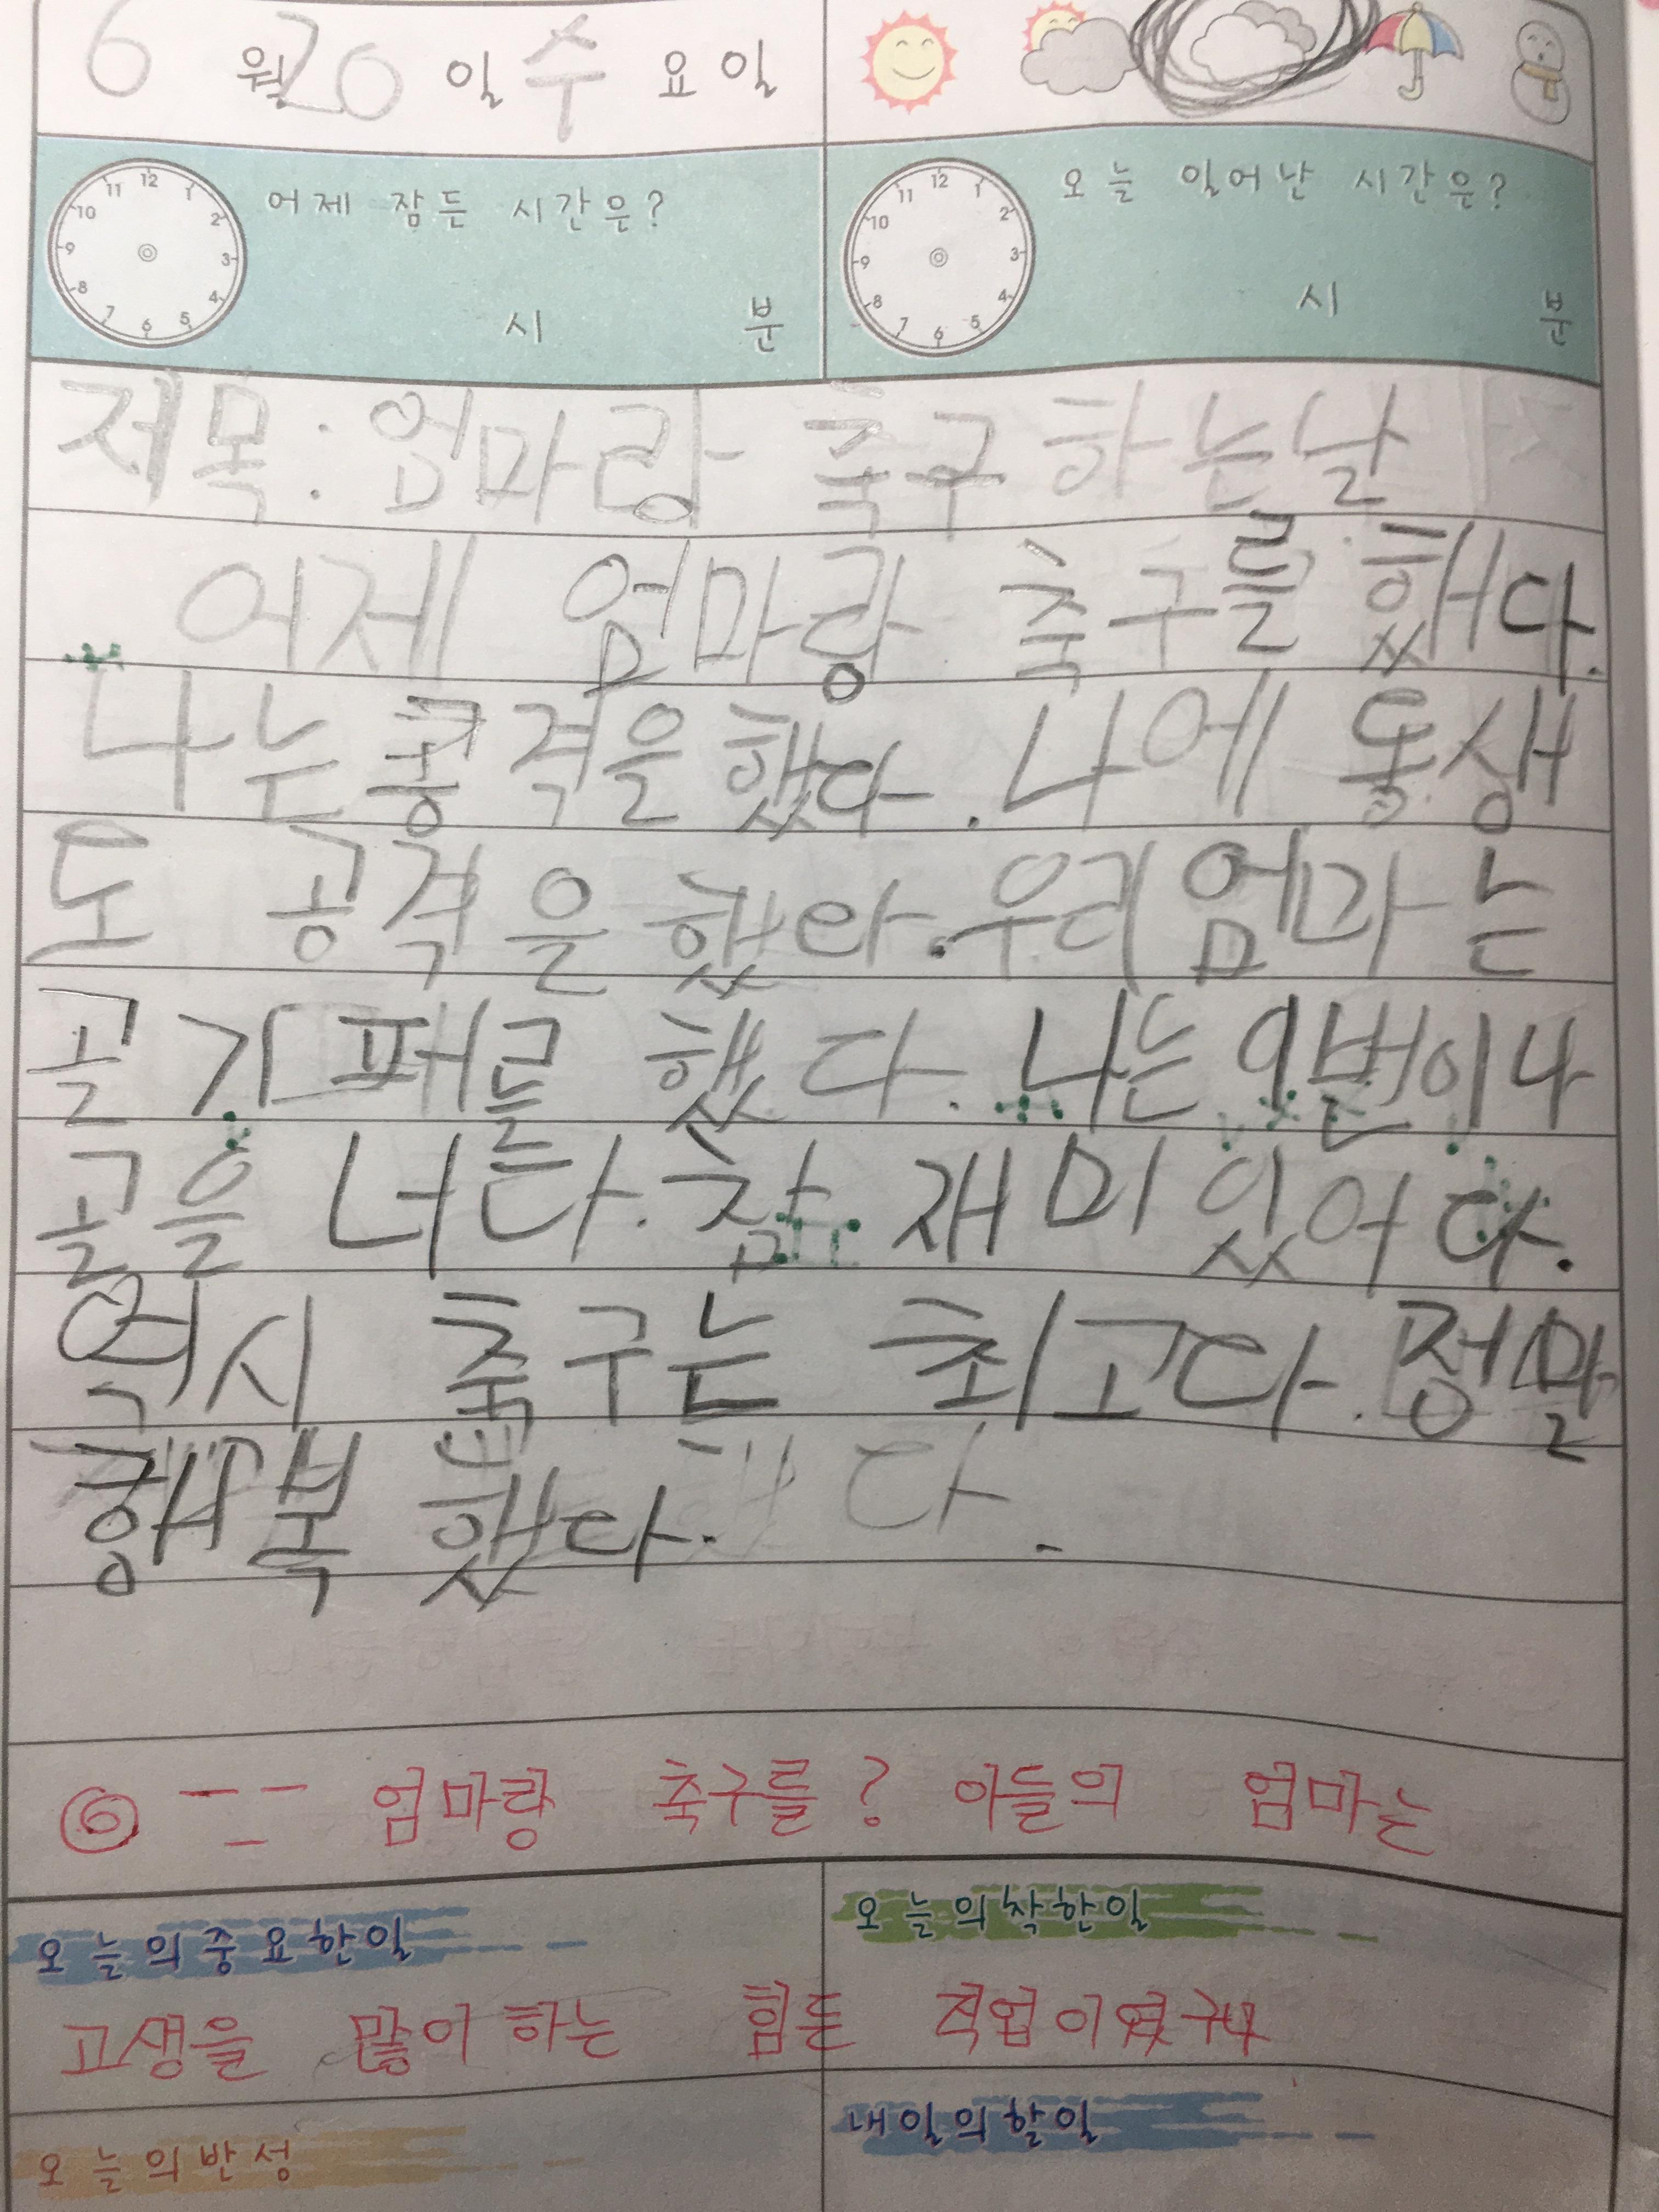 6월 20일 수요일
12 1 2 3 4 5 6 7 8 9 10 11
어제 잠든 시간은?
시 분
12 1 2 3 4 5 6 7 8 9 10 11
오늘 일어난 시간은?
시 분
제목: 엄마랑 축구하는날
어제 엄마랑 축구를 했다.
나는 공격을 했다. 나에 동생
도 공격을 했다. 우리 엄마는
골기패를 했다. 나는 9번이나
골을 너든다. 참 재미있어다.
역시 축구는 최고다. 정말
행복했다. 다.
엄마랑 축구를? 아들의 엄마는
오늘의중요한일
오늘의착한일
고생을 많이 하는 힘든 직업이였구나
오늘의반성
내일의할일